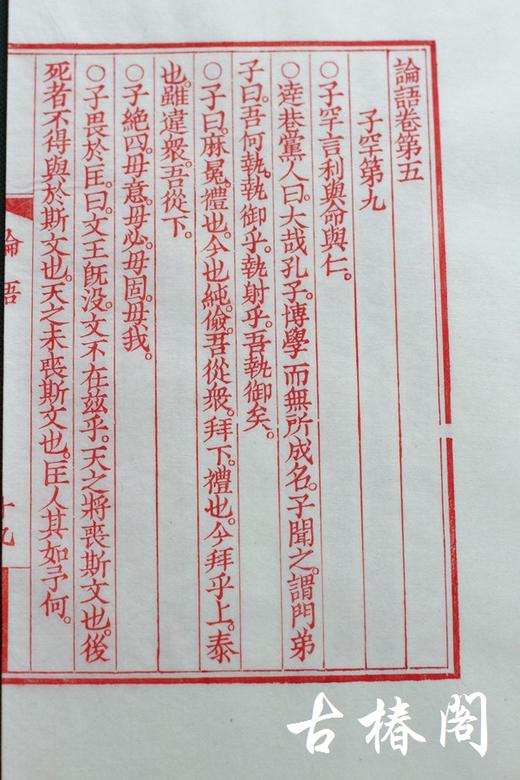 論語卷第五
子罕第九
○子罕言利與命與仁。
○達巷黨人曰。大哉孔子。博學而無所成名。子聞之。謂門弟
子曰。吾何執。執御乎。執射乎。吾執御矣。
○子曰。麻冕。禮也。今也純。儉。吾從衆。拜下。禮也。今拜乎上。泰
也。雖違衆。吾從下。
○子絶四。毋意。毋必。毋固。毋我。
○子畏於匡。曰。文王旣沒。文不在兹乎。天之將喪斯文也。後
死者不得與於斯文也。天之未喪斯文也。匡人其如予何。
論語
十九
古椿閣